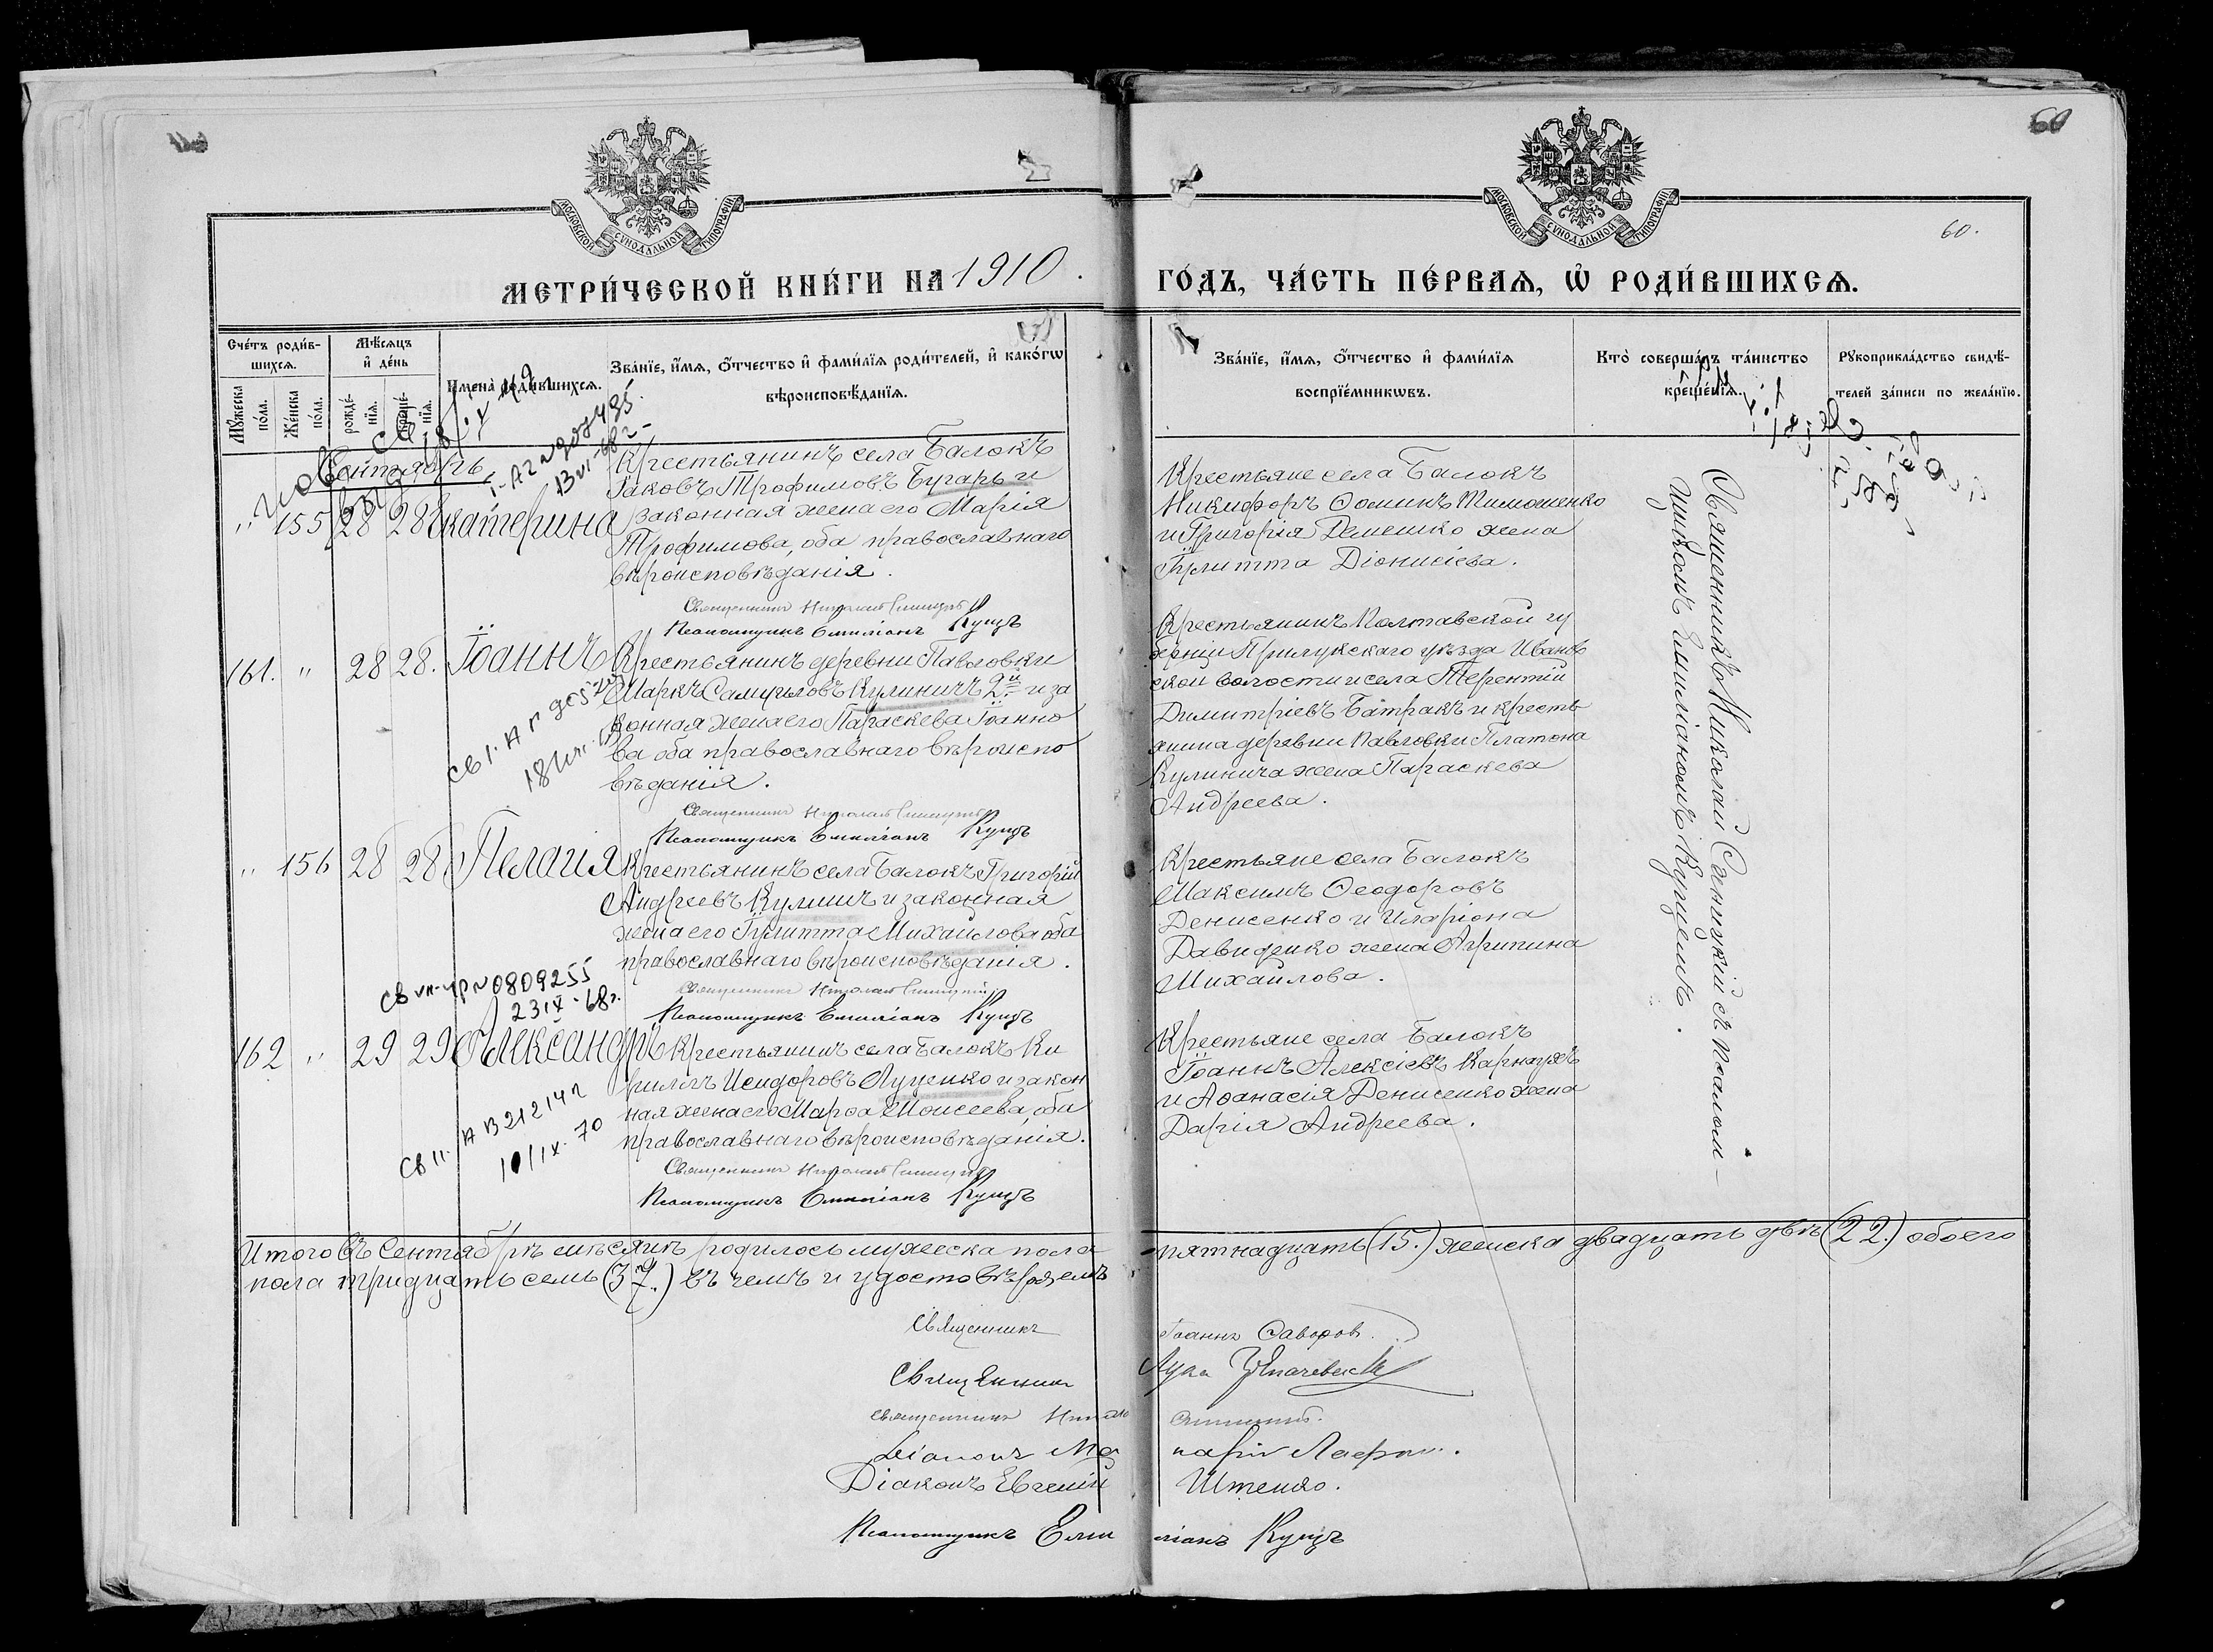 МОСКОВСКОЙ СѴНОДАЛЬНОЙ ТИПОГРАФІИ
МОСКОВСКОЙ СѴНОДАЛЬНОЙ ТИПОГРАФІИ
60
60.
МЕТРИ́ЧЕСКОЙ КНИ́ГИ НА 1910.
ГО́ДЪ, ЧА́СТЬ ПЕ́РВАѦ, Ѡ҆ РОДИ́ВШИХСѦ.
Сче́тъ роди́вшихсѧ.
Мꙋ́жеска по́ла.
Же́нска по́ла.
Мѣ́сѧцъ и҆ де́нь
рожде́нїѧ.
креще́нїѧ.
И҆мена̀ роди́вшихсѧ.
Зва́нїе, и҆́мѧ, ѻ҆́тчество и҆ фами́лїѧ роди́телей, и҆ како́гѡ
вѣроисповѣ́данїѧ.
Зва́нїе, и҆́мѧ, ѻ҆́тчество и҆ фами́лїѧ
воспрїе́мникѡвъ.
Кто̀ соверша́лъ та́инство
креще́нїѧ.
Рꙋкоприкла́дство свидѣ́-
телей за́писи по жела́нїю.
Сентябрь
" 155 28 28 Екатерина
13 VI-68 г.
Крестьянинъ села Балокъ
Іаковъ Трофимовъ Бугарь и
законная жена его Марія
Трофимова, оба православнаго
вѣроисповѣданія.
Священникъ Николай Синицкій
Псаломщикъ Емиліанъ Куцъ
Крестьяне села Балокъ
Никифоръ Ѳоминъ Тимошенко
и Григорія Демешко жена
Іулитта Діонисіева.
161. " 28 28. Іоаннъ
Крестьянинъ деревни Павловки
Маркъ Самуиловъ Кулиничъ 2й и за
конная жена его Параскева Іоанно
ва оба православнаго вѣроиспо
вѣданія.
Священникъ Николай Синицкій
Псаломщикъ Емиліанъ Куцъ
Крестьянинъ Полтавской гу
берніи Прилукскаго уѣзда Иванов
ской волости и села Терентій
Димитріевъ Батракъ и кресть
янина деревни Павловки Платона
Кулинича жена Параскева
Андреева.
" 156 28 28 Пелагія
Крестьянинъ села Балокъ Григорій
Андреевъ Кулишъ и законная
жена его Іулитта Михайлова оба
православнаго вѣроисповѣданія.
Священникъ Николай Синицкій
Псаломщикъ Емиліанъ Куцъ
Крестьяне села Балокъ
Максимъ Ѳеодоровъ
Денисенко и Иларіона
Давиденко жена Агрипина
Михайлова.
0809255
23 IX-68 г.
162 " 29 29 Александръ
Крестьянинъ села Балокъ Ки
риллъ Исидоровъ Луценко и закон
ная жена его Марѳа Моисеева, оба
православнаго вѣроисповѣданія.
Священникъ Николай Синицкій
Псаломщикъ Емиліанъ Куцъ
Крестьяне села Балокъ
Іоаннъ Алексіевъ Карнаухъ
и Аѳанасія Денисенко жена
Дарія Андреева.
Священникъ Николай Синицкій съ псалом-
щикомъ Емиліаномъ Куцемъ.
Итого въ Сентябрѣ мѣсяцѣ родилось мужеска пола пятнадцать (15.) женска двадцать двѣ (22.) обоего
пола тридцать семь (37.) въ чемъ и удостовѣряемъ
Священникъ Іоаннъ
Священникъ Лука
Священникъ Николай Синицкій.
Діаконъ
Діаконъ Евгеній Штенко.
Псаломщикъ Емиліанъ Куцъ